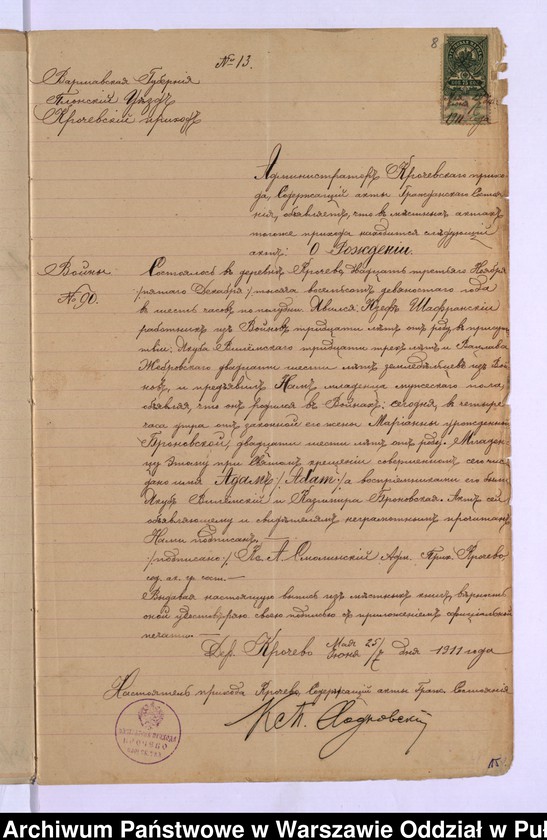 8
№ 13.
Варшавская Губернія
Плонскій Уѣздъ
Крочевскій приходъ
1911 года
Администраторъ Крочевскаго прихо-
да, Содержащій акты Гражданскаго Состоя-
нія, объявляетъ, что въ мѣстныхъ актахъ
тогоже прихода находится слѣдующій
актъ: О Рожденіи.
Войны
№ 90.
Состоялось въ деревнѣ Крочевѣ Двадцать третьяго Ноября
/пятаго Декабря/ тысяча восемьсотъ девяностаго года
въ шесть часовъ по полудни. Явился: Юзефъ Шафранскій
работникъ изъ Войновъ тридцати лѣтъ отъ роду, въ присут-
твіи: Якуба тридцати трехъ лѣтъ и
Жебровскаго двадцати шести лѣтъ земледѣльцевъ изъ Вой-
новъ, и предъявилъ Намъ младенца мужескаго пола,
объявляя, что онъ родился въ Войнахъ: сегодня, въ четыре
часа утра отъ законной его жены Маріанны урожденной
Броновской, двадцати шести лѣтъ отъ роду. Младен-
цу этому при Святомъ крещеніи совершенномъ сего числа
дано имя Адамъ /Adam/ а воспріемниками его были
Якубъ и Казимира Броновская. Актъ сей
объявляющему и свидѣтелямъ неграмотнымъ прочитанъ
Нами подписанъ.
/подписано/ Кс. А. Смолинскій Адм. Прих. Крочево
сод. ак. гр. сост.
Выдавая настоящую выпись изъ мѣстныхъ книгъ, вѣрность
оной удостовѣряю своею подписью съ приложеніемъ оффиціальной
печати.
Дер. Крочево Мая 25/Іюня 7 дня 1911 года
Настоятель прихода Крочево, Содержащій акты Граж. Состоянія
КРОЧЕВО
15
Archiwum Państwowe w Warszawie Oddział w Puł